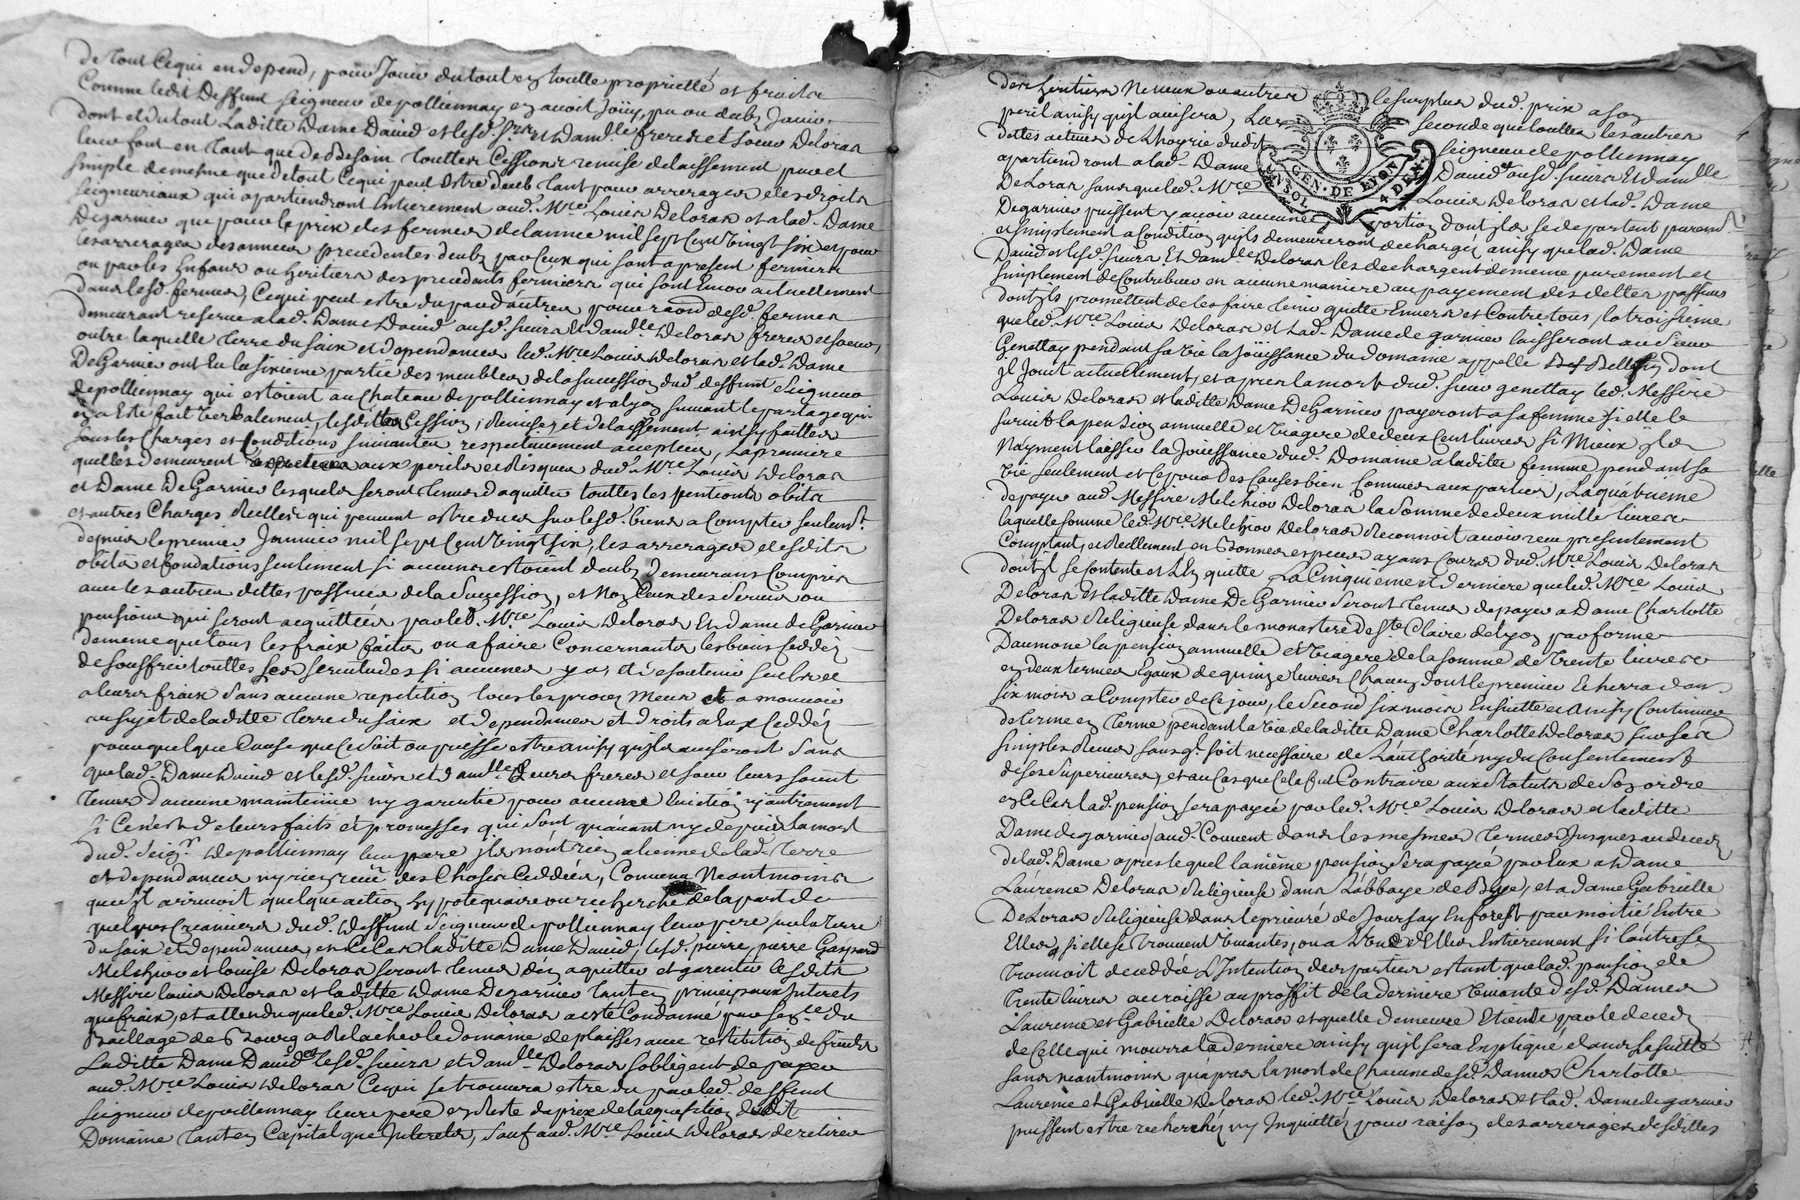 de tout Cequi en depend, pour Jouir du tout en toutte proprietté et fruits
Comme ledit Deffunt Seigneur depolliennay en avoit Joüy, pu ou deub Jouir
dont et du tout Laditte Dame David et lesd. Srs et Damlle freres et soeur Deloras
leur font en tant que de Besoin touttes Cessions remise delaissement pur et
simple de mesme que de tout Cequi peut Estre deub tant pour arrerages des droits
seigneuriaux qui apartiendront Entierement aud. Mre Louis Deloras et alad. Dame
Degarnier que pour le prix des fermes de lannee mil sept Cent vingt six et pour
les arrerages des annees precedentes deubs par Ceux qui sont apresent fermiers
ou par les Enfans ou heritiers des precedants fermiers qui sont Encor actuellement
dans lesd. fermes, Cequi peut estre du par d'autres pour raison desd. fermes
demeurant reservé alad. Dame David ausd. sieurs Et damlle Deloras freres et soeur,
outre laquelle Terre du saix et dependances led. Mre Louis Deloras et lad. Dame
DeGarnier ont Eu la sixieme partie des meubles de la succession dud. deffunt Seigneur
depolliennay qui estoient au Chateau depolliennay et alyon suivant le partage qui
en a Esté fait verbalement, lesdittes Cession, Remise, et delaissement ainsy faittes
sous les Charges et Conditions suivantes respectivement acceptées, La premiere
quelles demeurent aux perils et Risques dud. Mre Louis Deloras
et Dame DeGarnier lesquels seront tenus d'aquitter touttes les pentions obits
et autres Charges Reelles qui peuvent estre dues sur lesd. biens a Compter seulemt.
depuis le premier Janvier mil sept Cent vingt six, les arrerages desdits
obits et fondations seulement si aucuns estoient deubs demeurans Compris
avec les autres dettes passives de la Succession, et Non Ceux des servis ou
pensions qui seront acquittées par led. Mre Louis Deloras Et Dame de Garnier
de meme que tous les fraix faits ou a faire Concernants les biens Ceddés
de souffrir touttes les servitudes si aucunes y a, et de soutenir seuls et
a leurs fraix sans aucune repetition tous les proces Meus et a mouvoir
au sujet de laditte Terre du Saix et dependances et droits a Eux Ceddés
pour quelque Cause que Ce soit ou puisse estre ainsy quils aviseront sans
que lad. Dame David et lesd. sieurs et damlle leurs freres et soeur leurs soient
tenus d'aucune maintenüe ny garentie pour aucune Eviction ny autrement
si Ce n'est de leurs faits et promesses qui sont quavant ny depuis la mort
dud. Seigr. Depolliennay leur pere ils n'ont rien alienné de lad. Terre
et dependances ny rien receu des Choses Ceddées, Convenu Neantmoins
que s'il arrivoit quelque action hypotequaire ou recherche de la part de
quelques Creanciers dud. Deffunt Seigneur de polliennay leur pere sur la terre
du saix et dependances, en Ce Cas laditte Dame David, lesd. pierre, pierre Gaspard
Melchior et Louise Deloras seront tenus den aquitter et garentir lesdits
Messire Louis Deloras et laditte Dame Degarnier tant en principaux Interets
que fraix, et attendu que led. Mre Louis Deloras a esté Condamné par Sence du
Baillage de Bourg a Relacher le domaine de plaisses avec restitution de fruits
Laditte Dame David et lesd. sieurs et damlle Deloras s'obligent de payer
aud. Mre Louis Deloras Cequi se trouvera estre du par led. deffunt
Seigneur depolliennay leur pere en Reste du prix de lacquisition dudit
Domaine tant en Capital que Interets, sauf aud. Mre Louis Deloras de retirer
des heritiers Neveux ou autres le surplus dud. prix a son
peril ainsy quil avisera, La seconde que touttes les autres
dettes actives de Lhoyrie dudit Seigneur de polliennay
apartiendront a lad. Dame David et ausd. sieurs Et damlle
Deloras sans que led. Mre Louis Deloras et lad. Dame
Degarnier puissent y avoir aucune portion dont ils se departent purement
et simplement a Condition quils demeureront dechargés ainsy que lad. Dame
David et lesd. sieurs Et damlle Deloras les dechargent de meme purement et
simplement de Contribuer en aucune maniere au payement des dettes passives
dont ils promettent de les faire tenir quitte Envers et Contre tous, la troisieme
que led. Mre Louis Deloras et Lad. Dame de garnier laisseront au sieur
Genettay pendant sa vie la Joüissance du domaine appellé Bellefin dont
il Jouit actuellement, et apres la mort dud. sieur genettay led. Messire
Louis Deloras et laditte Dame De Garnier payeront a sa femme si elle le
survit la pension annuelle et viagere de deux Cent livres si Mieux ils
N'ayment laisser la Jouissance dud. Domaine a laditte femme pendant sa
vie seulement et Ce pour des Causes bien Connues aux parties, La quatrieme
de payer aud. Messire Melchior Deloras la Somme de deux mille livres
laquelle somme led. Mre Melchior Deloras Reconnoit avoir receu presentement
Comptant, et Reellement en Bonnes especes ayans Cours dud. Mre Louis Deloras
dont il se Contente et L'En quitte La Cinquieme et derniere que led. Mre Louis
Deloras et laditte Dame De Garnier seront tenus de payer a Dame Charlotte
Deloras Religieuse dans le monastere de Ste Claire de lyon par forme
Daumone la pension annuelle et viagere de la somme de trente livres
en deux termes Egaux de quinze livres Chacun dont le premier Echerra dans
six mois a Compter de Ce jour, le second six mois Ensuitte et ainsy Continuer
de terme en terme pendant la vie de laditte Dame Charlotte Deloras sur ses
simples Receus sans ql. soit necessaire de L'authorité ny du Consentement
de ses Superieures, et au Cas que Cela fut Contraire aux Statuts de son ordre
en Ce Cas lad. pension sera payée par led. Mre Louis Deloras et laditte
Dame degarnier aud. Couvent dans les mesmes termes Jusques au deces
de lad. Dame apres lequel la même pension sera payée par Eux a Dame
Laurence Deloras Religieuse dans L'abbaye de Bons, et a Dame Gabrielle
De Loras Religieuse dans le prieuré de Joursay En forest par moitié Entre
Elles si elles se trouvent vivantes, ou a L'une d'Elles Entierement si l'autre se
trouvoit deceddée L'Intention des parties estant que lad. pension de
trente livres accroisse au proffit de la derniere vivante desd. Dames
Laurence et Gabrielle Deloras et quelle demeure Eteinte par le deces
de Celle qui mourra la derniere ainsy quil sera Expliqué dans la suitte
sans neantmoins quapres la mort de Chacune desd. Dames Charlotte
Laurence et Gabrielle Deloras led. Mre Louis Deloras et lad. Dame de garnier
puissent estre recherchés ny Inquiettés pour raison des arrerages desdittes
GEN. DE LYON
UN SOL 4 DEN.